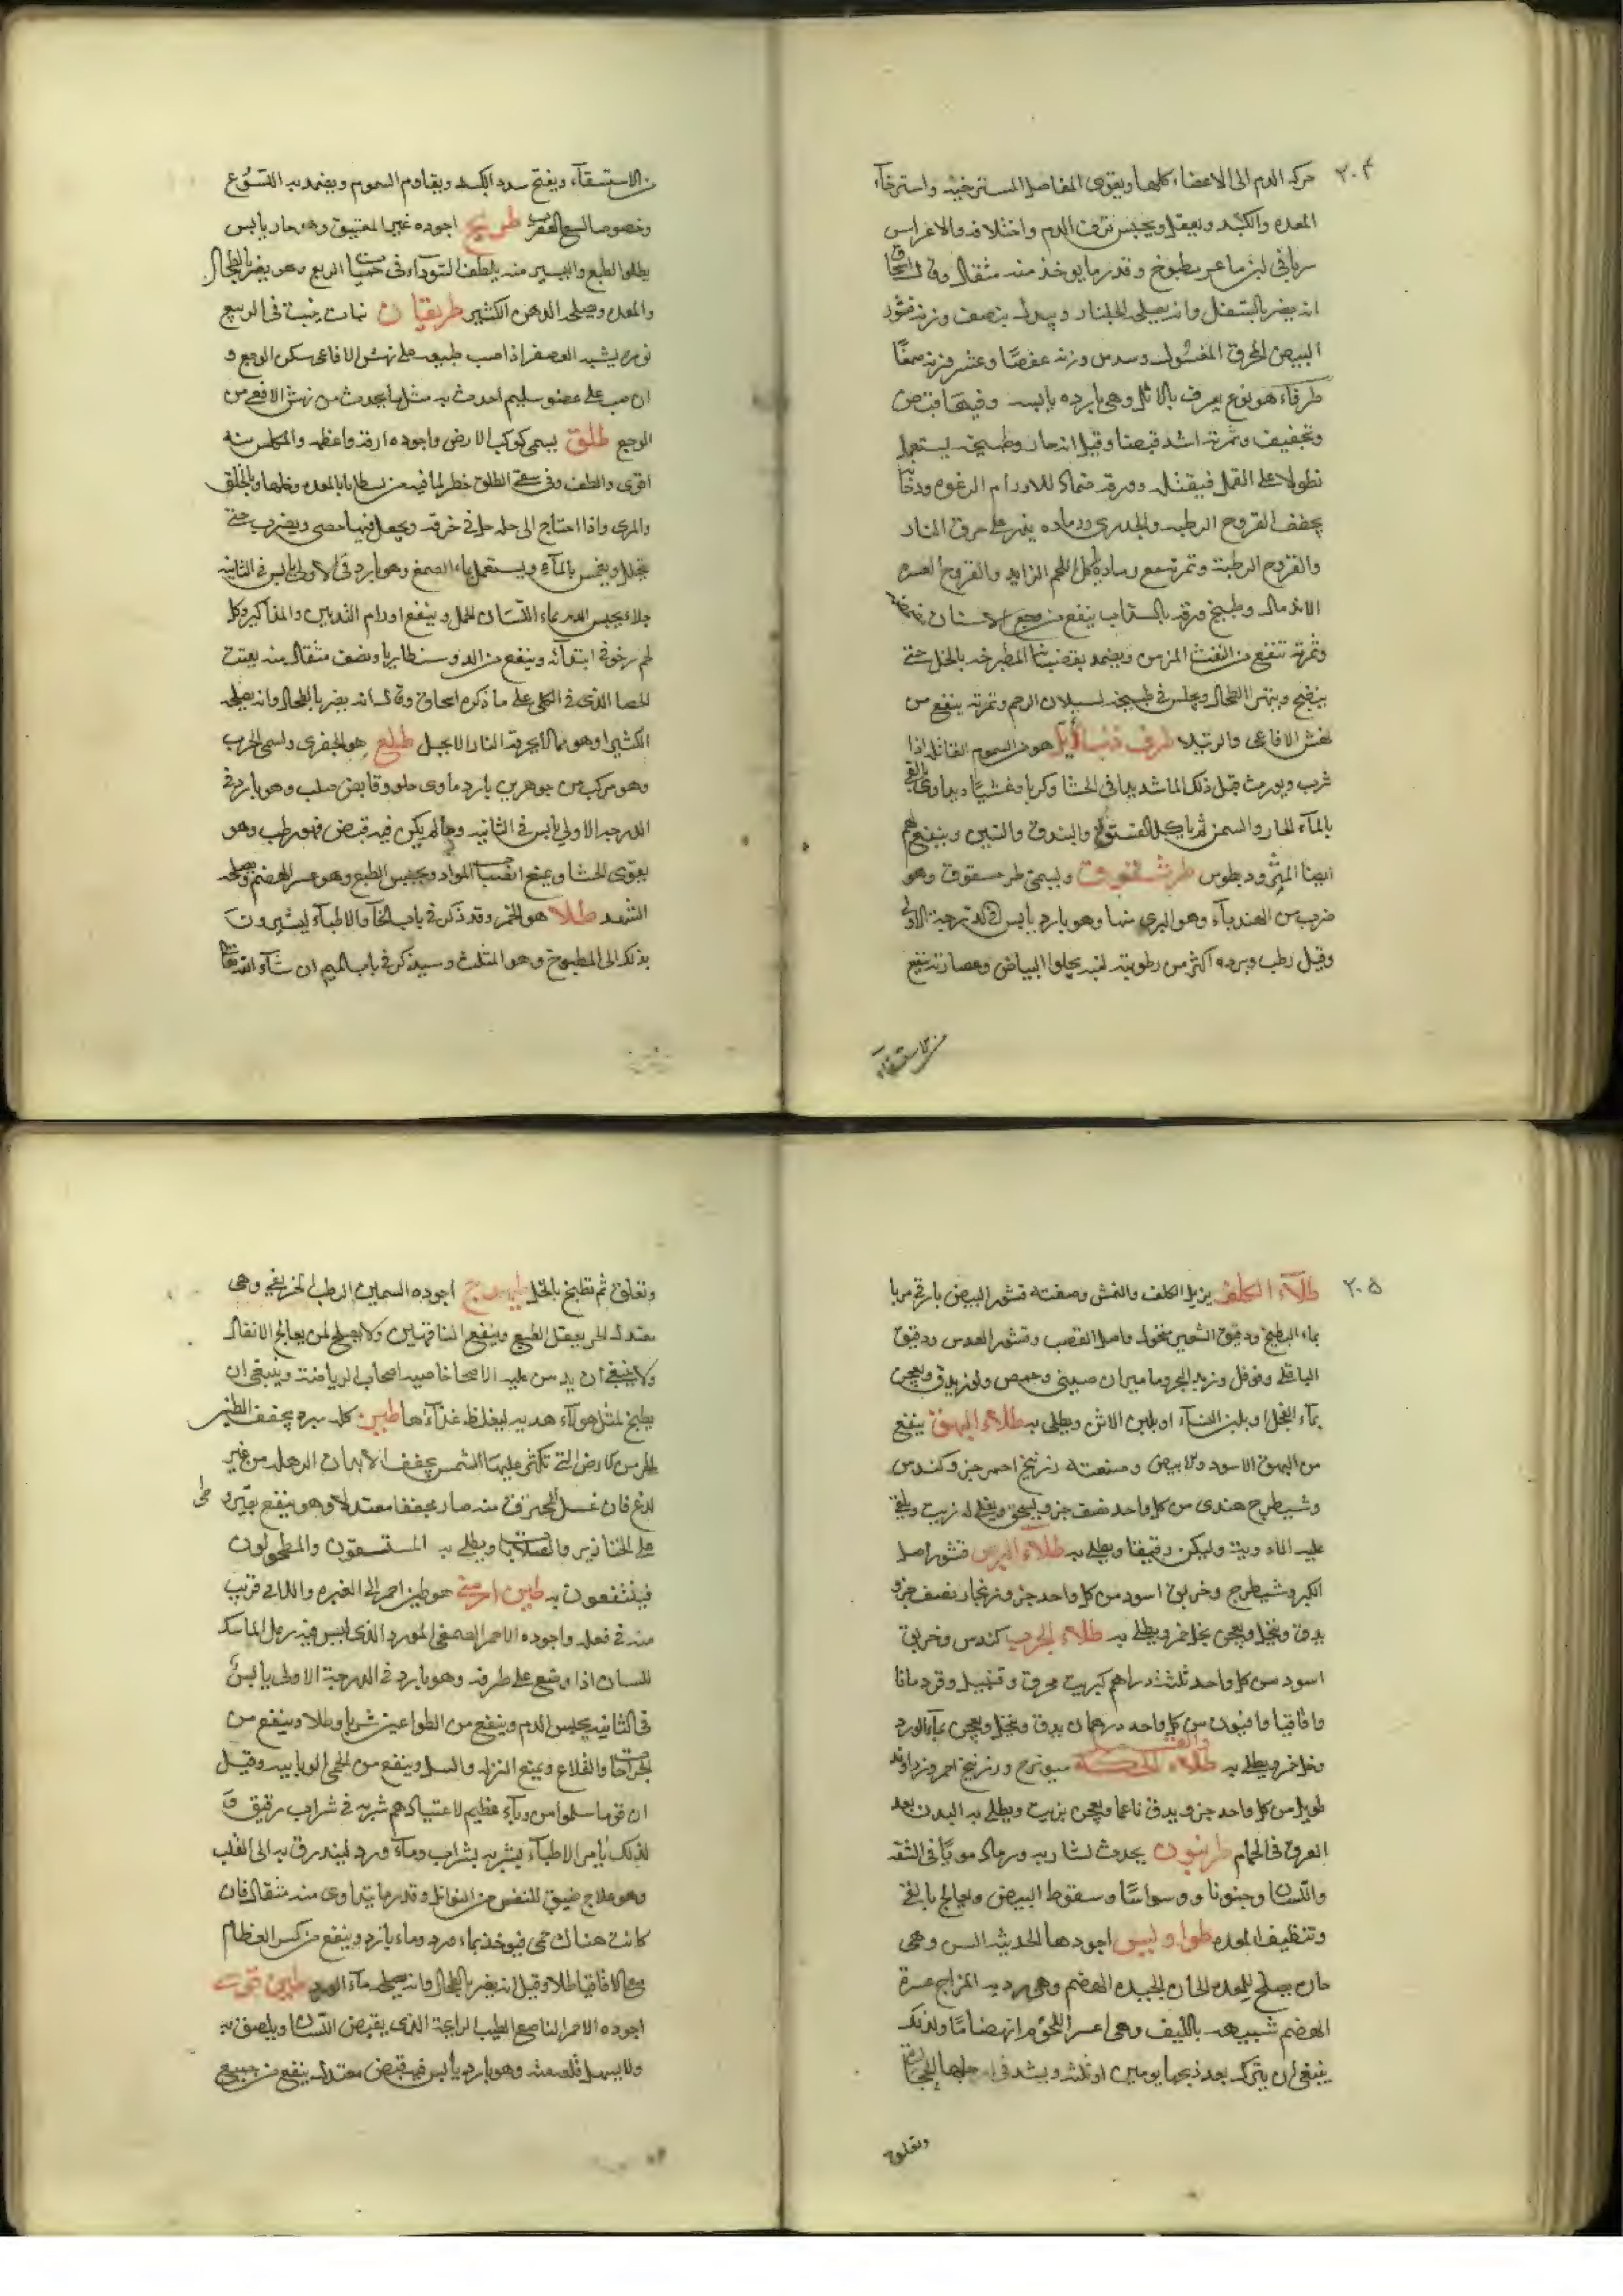 ٢٠٤
حركة الدم الى الاعضاء كلها ويقوى المفاصل المسترخيه واسترخاء
المعده والكبد ويعقل ويحبس نزف الدم واختلافه والاعراس
ماعز مطبوخ وقدر ما يوخذ منه مثقال وقال اسحاق
انه يضر بالسفل وانه يصلحه الجلنار وبدله نصف وزنه قشور
البيض المحرق المغسول وسدس وزنه عفصًا وعشر وزنه صمغًا
طرفاء هو نوع يعرف بالاثل وهى بارده يابسه وفيها قبض
وتجفيف وثمرته اشد قبضا وقيل انه حار وطبيخه يستعمل
نطولا على القمل فيقتله وورقه ضماد للاورام الرخوه ودخانه
يجفف القروح الرطبه والجدرى ورماده يذر على حرق النار
والقروح الرطبة وثمرته مع رماده ياكل اللحم الزايد والقروح العسره
الاندمال وطبيخ ورقه بالشراب ينفع من وجع الاسنان
وثمرته تنفع من النفث المزمن ويضمد بقضبانها المطبوخه بالخل حتى
ينضج الطحال ويجلس فى طبيخه لسيلان الرحم وثمرته ينفع من
نهش الافاعى والرتيلا طرف ذنب الايّل هو من السموم القاتله اذا
شرب ويورث قبل ذلك الما شديدا فى الحشا وكربا وغشيًا ويداوى بالقى
بالماء الحار والسمن ثم ياكل الفستق والبندق والتين وينفعهم
ايضا المثرودبطوس طرشقوق ويسمى طرحسقوق وهو
ضرب من الهندباء وهو البرى منها وهو بارد يابس فى الدرجة الاولى
وقيل رطب وبرده اكثر من رطوبته لبنه يجلوا البياض وعصارته ينفع
من الاستسقاء
من الاستسقاء ويفتح سدد الكبد ويقاوم السموم ويضمد به للسوع
وخصوصا لسع العقرب طريخ اجوده غير العتيق وهو حار يابس
يطلق الطبع واليسير منه يلطف السوداء فى حميات الربع وهو يضر بالطحال
والمعده ويصلحه الدهن الكثير طريقان نبات ينبت فى الربيع
بزره يشبه العصفر اذا صب طبيخه على نهش الافاعى سكن الوجع و
ان صب على عضو سليم احدث به مثل ما يحدث من نهش الافعى من
الوجع طلق يسمى كوكب الارض واجوده ارقه واعظمه والمكلس منه
اقوى والطف وفى سقى الطلق خطر لما فيه من بالمعده وخملها وبالحلق
والمرى واذا احتاج الى حله حل فى خرقه ويجعل فيها حصى ويضرب حتى
يتحلل ويغمس بالماء ويستعمل بماء الصمغ وهو بارد فى الاولى يابس فى الثانيه
يحبس الدم بماء لسان الحمل وينفع اورام الثديين والمذاكير وكل
لحم رخو فى ابتدائه وينفع من الدوسنطاريا ونصف مثقال منه يفتت
الحصا الذى فى الكلى على ما ذكره اسحاق وقال انه يضر بالطحال وانه يصلحه
الكثيرا وهو مما لا يحرقه النار الا بحيل طلع هو الجفرى ويسمى الحرب
وهو مركب من جوهرين بارد ماوى حلو وقابض صلب وهو بارد فى
الدرجه الاولى يابس فى الثانيه وما لم يكن فيه قبض فهو رطب وهو
يقوى الحشا ويمنع انصباب المواد ويحبس الطبع وهو عسر الهضم ويصلحه
الشهد طلا هو الخمر وقد ذكر فى باب الخاء والاطباء يشيرون
بذلك الى المطبوخ وهو المثلث وسيذكر فى باب الميم ان شاء الله تعالى
٢٠٥
طلاء الكلف يزيل الكلف والنمش وصفته قشور البيض
بماء البطيخ ودقيق الشعير منخول واصل القصب وقشور العدس ودقيق
الباقلى وفوفل وزبد البحر وماميران صينى وحمص ولوز يدق ويعجن
بماء الفجل او بلبن النساء او بلبن الاتن ويطلى به طلاء البهق ينفع
من البهق الاسود والابيض وصنعته زرنيخ احمر جزو كندس
وشيطرج هندى من كل واحد نصف جزو يسحق ويغلى له زيت ويلقى
عليه الادويه وليكن رقيقا ويطلى به طلاء البرص قشور اصل
الكبر وشيطرج وخربق اسود من كل واحد جزو وزنجار نصف جزو
يدق وينخل ويعجن بخل خمر ويطلى به طلاء الجرب كندس وخربق
اسود من كل واحد ثلثة دراهم كبريت محرق وقنبيل وقردمانا
واقاقيا وافيون من كل واحد درهمان يدق وينخل ويعجن بماء الورد
وخل خمر ويطلى به طلاء الحكة والقمل ميويزج وزرنيخ احمر وزراوند
طويل من كل واحد جزو يدق ناعما ويعجن بزيت ويطلى به البدن بعد
العرق فى الحمام طرنبون يحدث لشاربه ورما دمويًا فى الشفه
واللسان وجنونا ووسواسًا وسقوط البيض ويعالج بالقى
وتنظيف المعده طواويس اجودها الحديثه السن وهى
حاره يصلح للمعده الحاره الجيده الهضم وهى رديه المزاج عسرة
الهضم شبيهه بالليف وهى اعسر اللحوم انهضامًا ولذلك
ينبغى ان يترك بعد ذبحها يومين او ثلثه ويشد فى ارجلها الحجاره
وتعلق
وتعلق ثم تطبخ بالخل طيهوج اجوده السمين الرطب الخريفى وهى
معتدل الحر يعقل الطبع وينفع الناقهين ولا يصلح لمن يعالج الاثقال
ولا ينبغى ان يدمن عليه الاصحا خاصيه اصحاب الرياضة وينبغى ان
يطبخ لمثل هولاء هديه ليغلظ غذاءها طين كله مبرد يجفف الطين
الحر من الارض التى تكثر عليها الشمس يجفف الابدان الرهله من غير
لدغ فان غسل المحترق منه صار مجففا معتدلا وهو ينفع بقيروطى
على الخنازير والصلابات ويطلى به المستسقون والمطحولون
فينتفعون به طين ارمنى هو طين احمر الى الغبره واللانى قريب
منه فى فعله واجوده الاحمر الصمغى المورد الذى ليس فيه رمل الماسك
للسان اذا وضع على طرفه وهو بارد فى الدرجة الاولى يابس
فى الثانيه يحبس الدم وينفع من الطواعين شربا وطلا وينفع من
الجراحات والقلاع ويمنع النزله والسل وينفع من الحمى الوبايه وقيل
ان قوما سلموا من وباء عظيم لاعتيادهم شربه فى شراب رقيق و
لذلك يامر الاطباء بشربه بشراب وماء ورد لينذرق به الى القلب
وهو علاج ضيق النفس من النوازل وقدر ما يتداوى منه مثقال فان
كانت هناك حمى فيوخذ بماء ورد وماء بارد وينفع من كسر العظام
مع الاقاقيا طلا وقيل انه يضر بالطحال وانه يصلحه ماء الورد طين مختوم
اجوده الاحمر الناصع الطيب الرايحة الذى يقبض اللسان ويلصق به
ولا يسهل قلعه عنه وهو بارد يابس فيه قبض معتدل ينفع من جميع